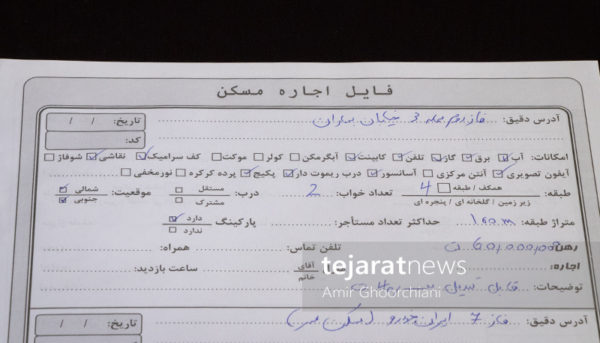 فایل اجاره مسکن
آدرس دقیق: فاز دوم محله
تاریخ: / /
کد:
امکانات: آب برق گاز تلفن کابینت آبگرمکن کولر موکت کف سرامیک نقاشی شوفاژ
آیفون تصویری آنتن مرکزی آسانسور درب ریموت دار پکیج پرده کرکره نورمخفی
طبقه: همکف / طبقه 4 تعداد خواب: 2 درب: مستقل موقعیت: شمالی
زیر زمین / گلخانه ای / پنجره ای مشترک جنوبی
متراژ طبقه: حداکثر تعداد مستأجر: پارکینگ دارد
ندارد
رهن: تلفن تماس: همراه:
اجاره: آقای ساعت بازدید:
خانم
توضیحات: قابل تبدیل
آدرس دقیق: فاز 7 ایران خودرو
تاریخ: / /
tejaratnews
Amir Ghoorchiani